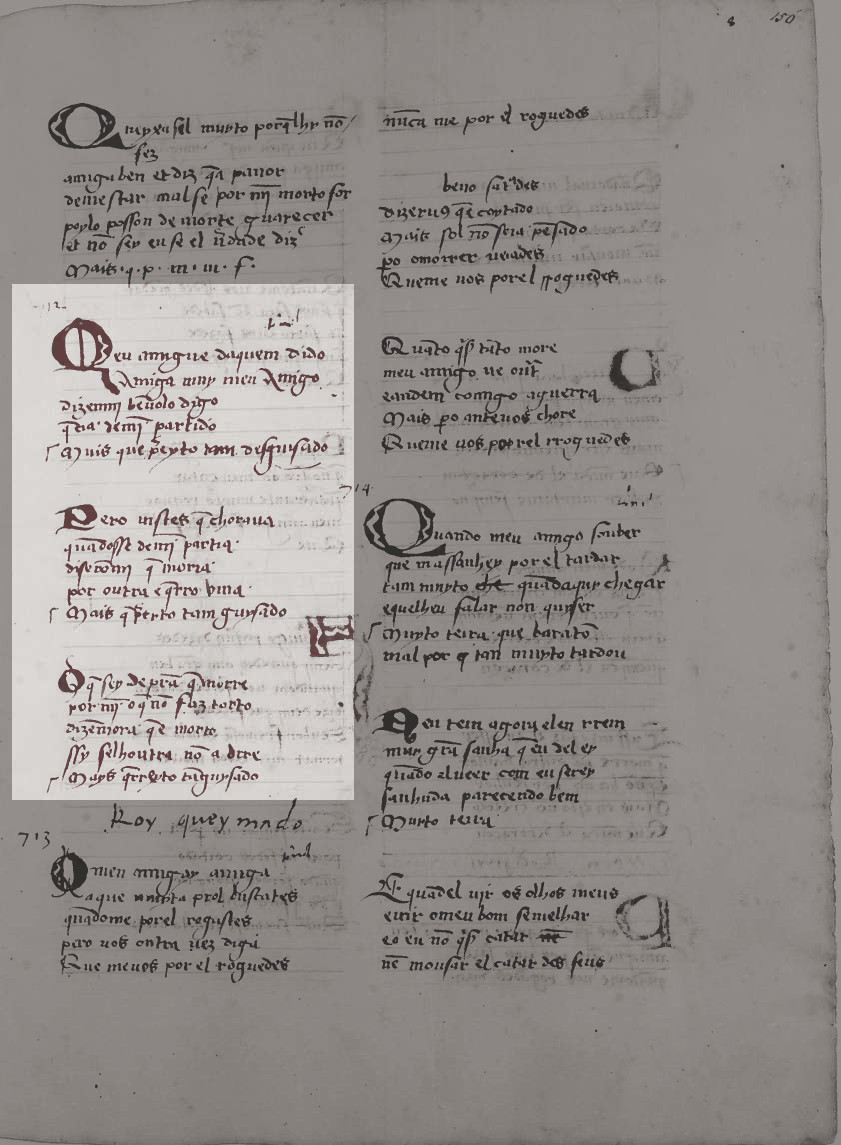 8 150
Q ueyxasel muyto porq̄ lhi nō
fez
amiga ben et diz q̄ a pauor
demestar mal se por mī morto for
poylo posson de morte guarecer
et nō sey eu se el ũdade diz
Mais · q · p · m · m · f ·
712
Meu amigue daquem dido
Amiga muy meu Amigo
dizenmi bẽ uolo digo
q̄ ia de mī partido
Mais que p̃eyto tam desguisado
Pero uistes q̄ choraua
quādosse demī partia
disecomī q̄ moria
por outra e q̄rro uina
Mais q̄ p̃eito tam guysado
O q̄ sey de prā q̄ morre
por mī o q̄ nō faz torto
dizē mora q̄ e morto
ssy selhoutra nō a corre
Mays q̄ p̃eyto taguysado
Roy queymado
713
O meu amigay amiga
aque muyta prol buscates
quādome porel rogastes
pero uos outra uez diga
Que meuos por el roguedes
nūca me por el roguedes
beno sabedes
dizerug q̄ e coytado
Mais sol nō seia pēsado
p̄o omoirer ueiades
Queme uos porel rroguedes
Quāto q̄s̄r tāto more
meu amigo ue out̃
eandem comigo aguerra
Mais p̄o ante uos chore
Queme uos por el rroguedes
714
Quando meu amigo souber
que massanhey por el tardar
tam muyto quādaquy chegar
equelheu falar non quiser
Muyto terra que baratō
mal por q tan muyto tardou
Nen tem agora elen rrem
muy grā sanha q̄ eu del ey
quādo el ueer com eu serey
sanhuda parecendo bem
Muito terra
E quādel uir os olhos meus
e uir omeu bom semelhar
eo eu nō q̄s̄r catar
nē mousar el catar dos seus